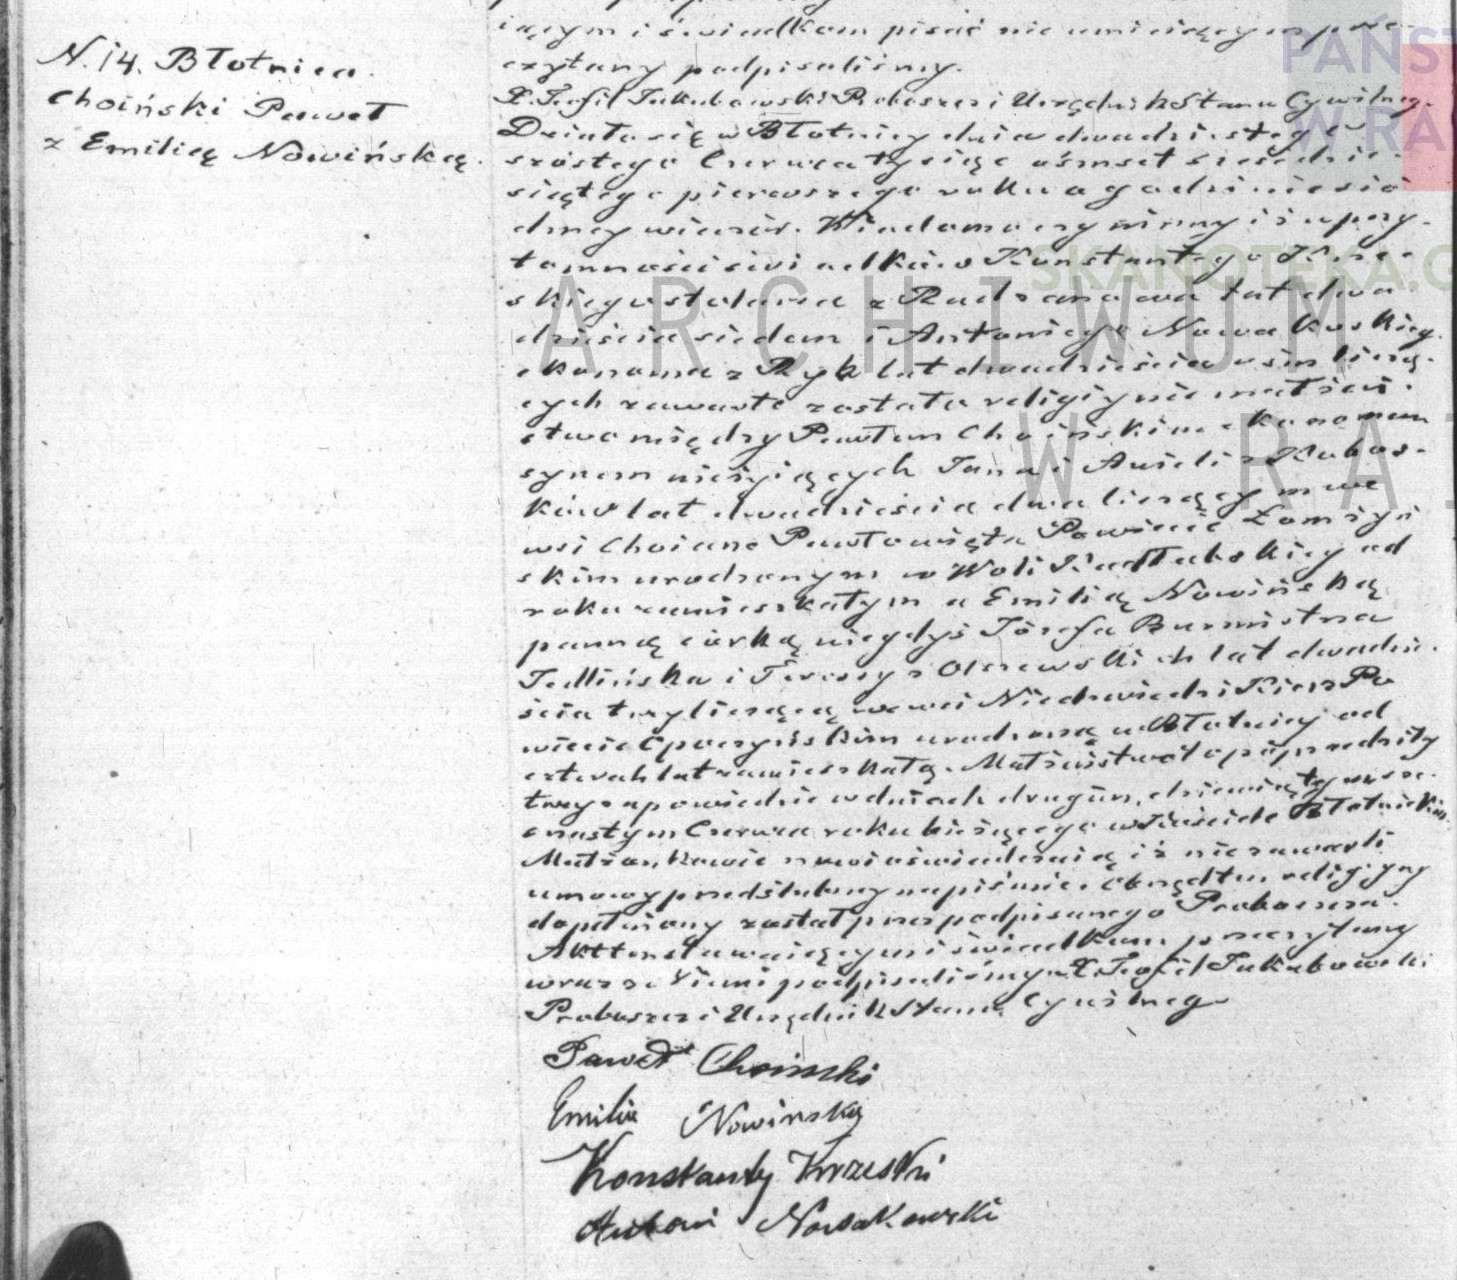 N. 14. Błotnica.
Choiński Paweł
z Emilią Nowińską.
iącym i świadkom pisać nie umieiącym prze-
czytany podpisaliśmy.
X. Teofil Jakubowski Proboszcz i Urzędnik Stanu Cywilneg.
Działo się w Błotnicy dnia dwudziestego
szóstego Czerwca tysiąc ośmset sześćdzie-
siątego pierwszego roku o godzinie sió-
dmey wieczór. Wiadomo czynimy iż w przy-
tomności świadków Konstantego Krze-
skiego stolarza z Radzanowa lat dwa
dzieścia siedem i Antoniego Nowakoskieg.
ekonoma z Ryk lat dwadzieścia ośm liczą-
cych zawarte zostało religiyne małżeń-
stwo między Pawłem Choińskim ekonomem
synem nieżyiących Jana i Anieli z Kubos-
ków lat dwadzieścia dwa liczącym we
wsi Choiane Pawłowięta Powiecie Łomżyń
skim urodzonym w Woli Kadłubskiey od
roku zamieszkałym a Emilią Nowińską
panną córką niegdyś Józefa Burmistrza
Jedlińska i Teressy z Olszewskich lat dwadzie-
ścia trzy liczącą we wsi Niedźwiedzi Kierz Po
wiecie Opoczyńskim urodzoną w Błotnicy od
czterech lat zamieszkałą. Małżeństwo to poprzedziły
trzy zapowiedzie w dniach drugim, dziewiątym sze-
snastym Czerwca roku bieżącego w Kościele Błotnickim.
Małżonkowie nowi oświadczaią iż nie zawarli
umowy przedślubney na piśmie. Obrządek religiyny
dopełniony został przez podpisanego Proboszcza.
Akt ten stawaiącym i świadkom przeczytany
wraz z niemi podpisaliśmy X. Teofil Jakubowski
Proboszcz i Urzędnik Stanu Cywilnego
Paweł Choinski
Emilia Nowinska
Konstanty Krzeski
Antoni Nowakowski
PAŃST
W RA
SKANOTEKA.G
ARCHIWUM
W RA